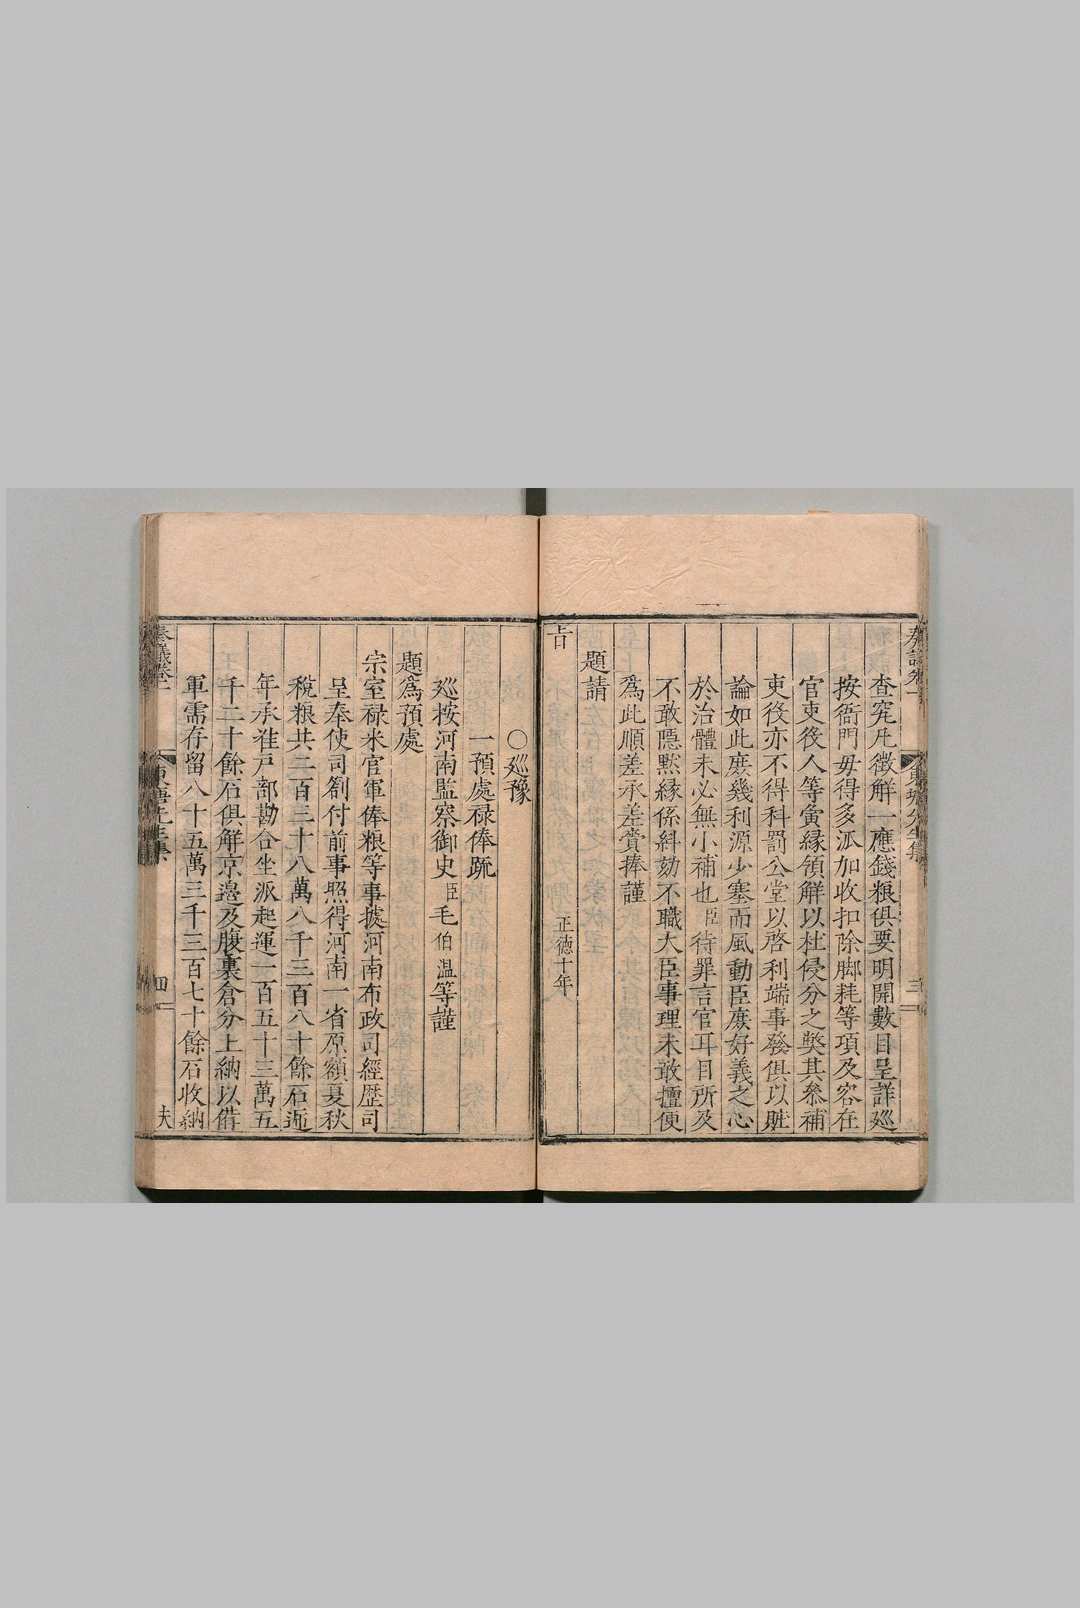 查究凡徵解一應錢粮俱要明開數目呈詳廵
按衙門毋得多派加收扣除脚耗等項及容在
官吏後人等寅縁領解以杜侵分之獘其叅補
吏役亦不得科罰公堂以啓利端事發俱以賍
論如此庶幾利源少塞而風動臣庶好義之心
於治體未必無小補也臣待罪言官耳目所及
不敢隱黙縁係糾劾不職大臣事理未敢擅便
為此順差承差賫捧謹
題請
旨
正德十年
○廵豫
一預處禄俸疏
廵按河南監察御史臣毛伯溫等謹
題為預處
宗室禄米官軍俸粮等事據河南布政司經歴司
呈奉使司劄付前事照得河南一省原額夏秋
稅粮共二百三十八萬八千三百八十餘石近
年承准戸部勘合坐派起運一百五十三萬五
千二十餘石俱解京邊及腹裏倉分上納以備
軍需存留八十五萬三千三百七十餘石收納
奏議卷一
四
夫